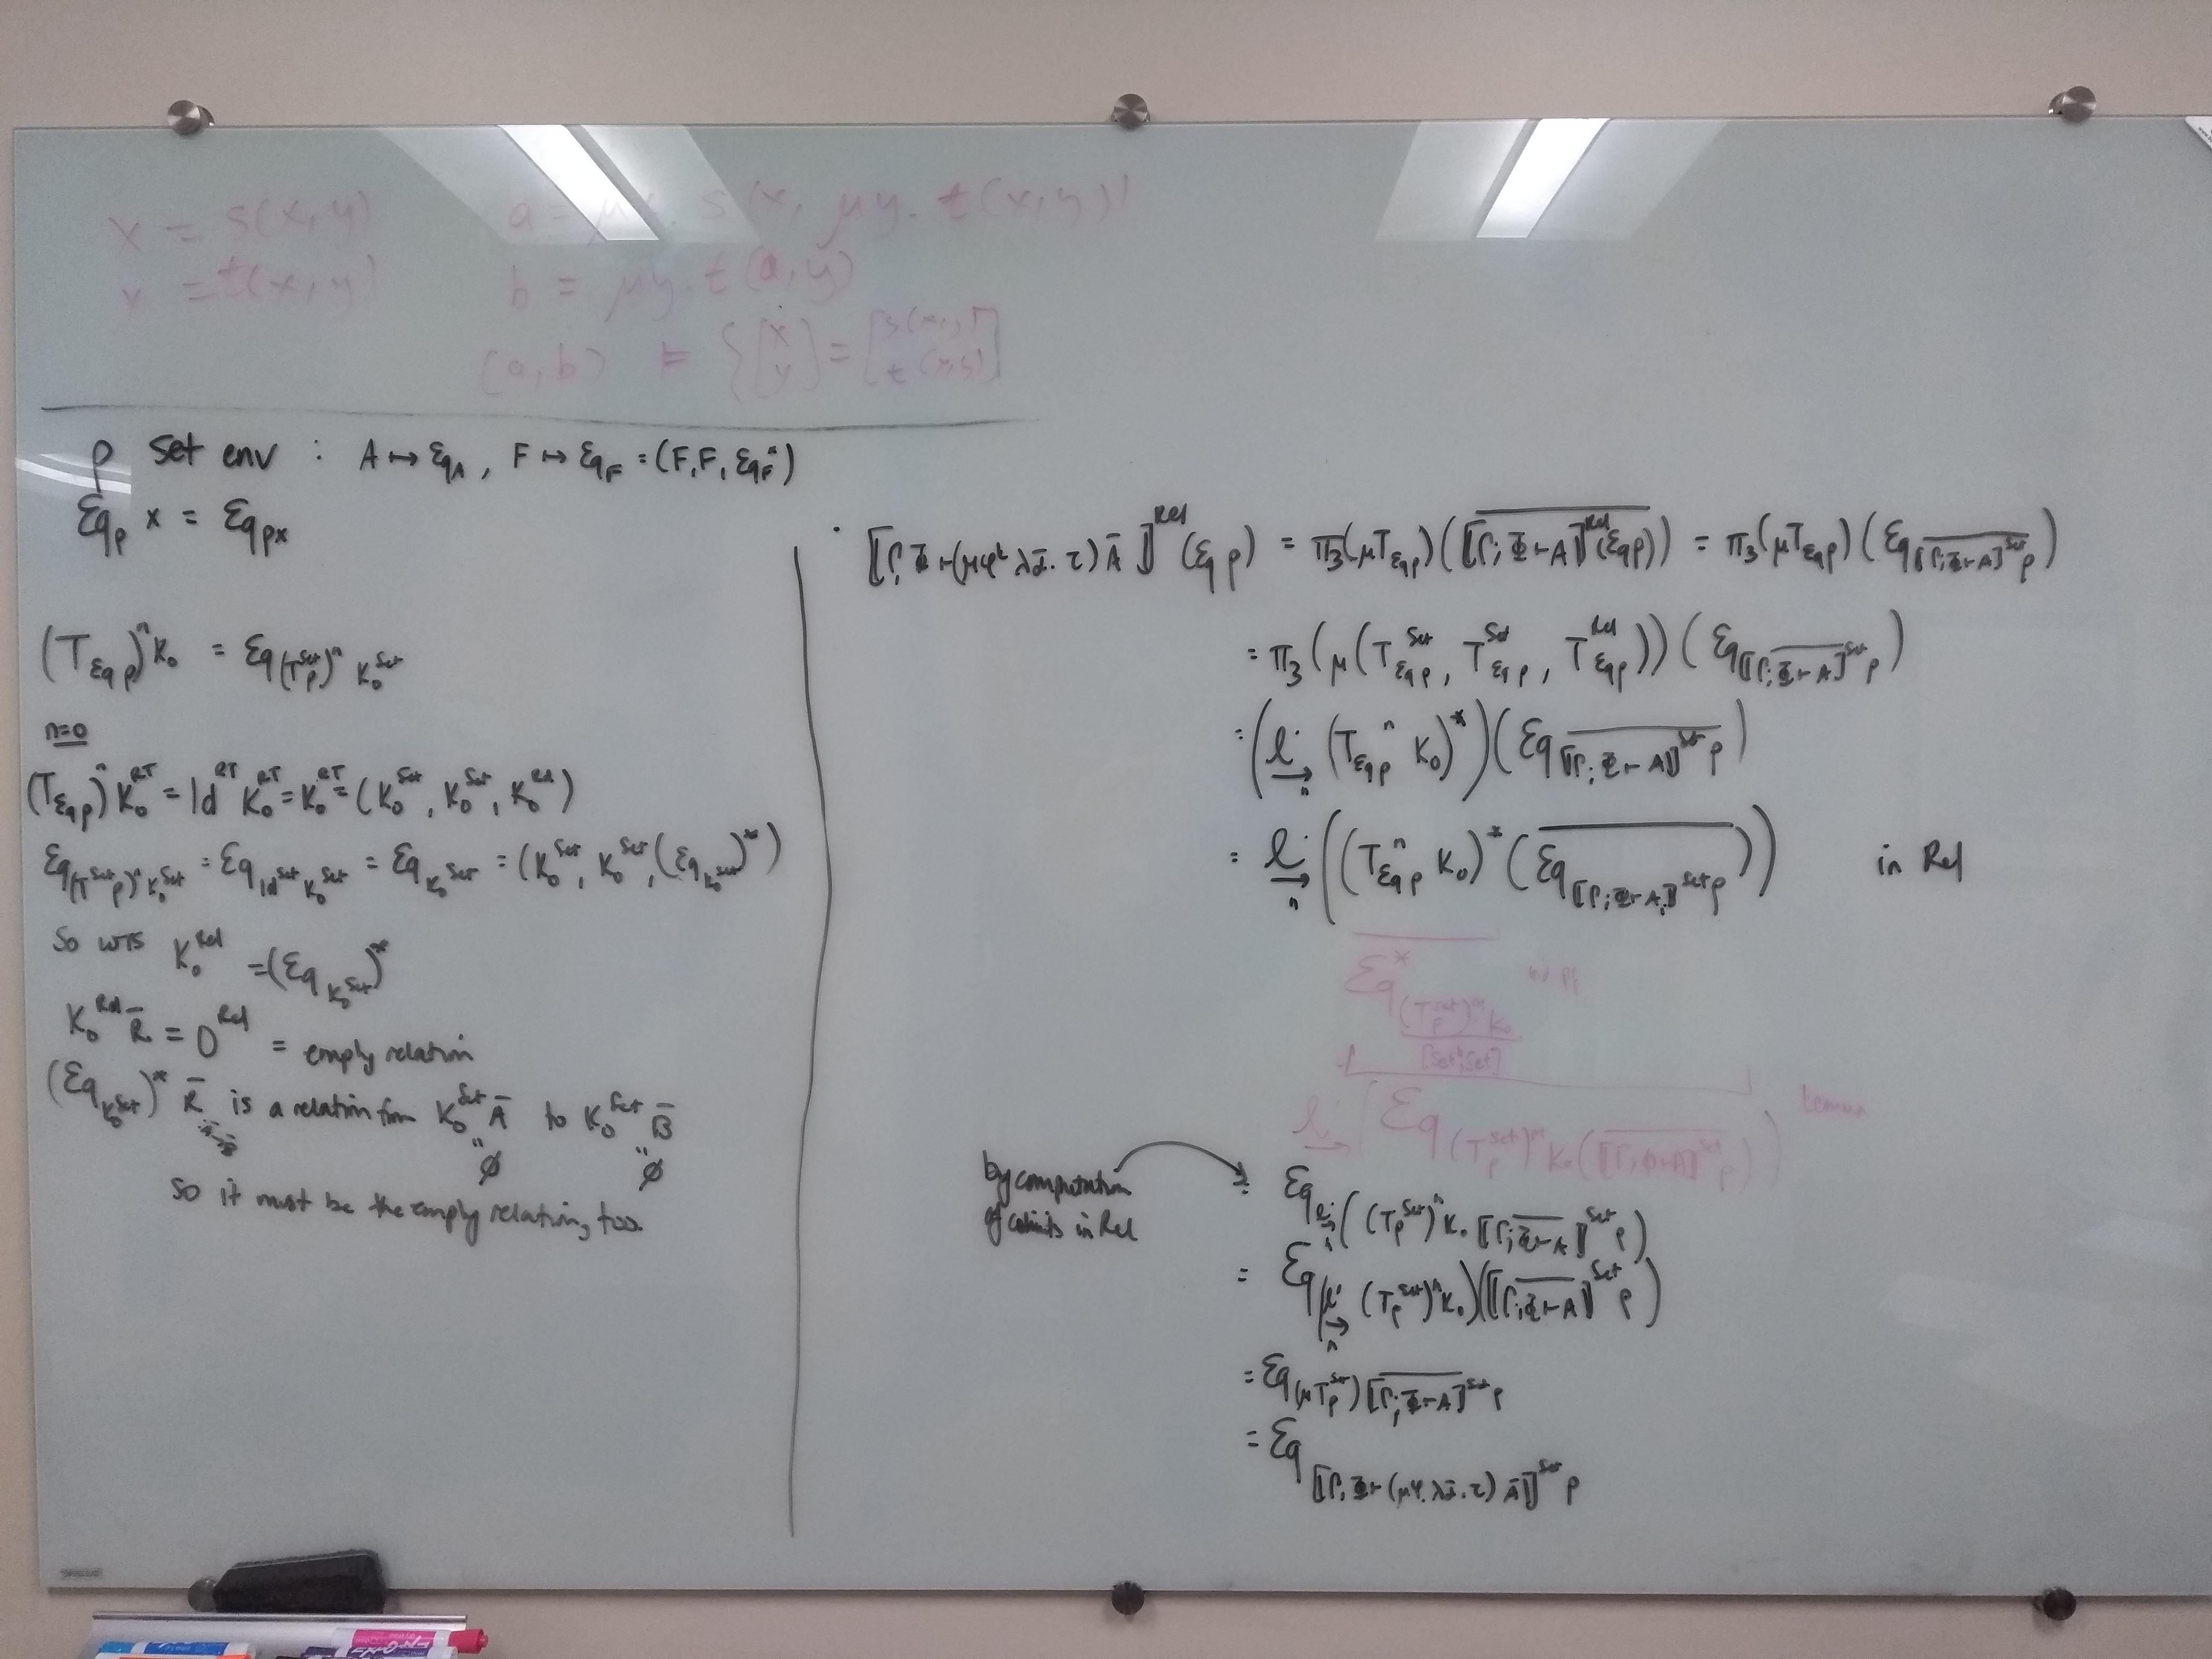 x = s(x, y)
y = t(x, y)
a = μx. s(x, μy. t(x, y))
b = μy. t(a, y)
(a, b) ⊨ { [x y] = [s(x, y) t(x, y)]
ρ Set env : A ↦ Eq_A , F ↦ Eq_F = (F, F, Eq_F^*)
Eq_ρ x = Eq_{ρx}
(T_{Eq ρ})^n K_0 = Eq_{(T_ρ^{Set})^n K_0^{Set}}
n=0
(T_{Eq ρ})^n K_0^{RT} = Id^{RT} K_0^{RT} = K_0^{RT} = (K_0^{Set}, K_0^{Set}, K_0^{Rel})
Eq_{(T^{Set}ρ)^n K_0^{Set}} = Eq_{Id^{Set} K_0^{Set}} = Eq_{K_0^{Set}} = (K_0^{Set}, K_0^{Set}, (Eq_{K_0^{Set}})^*)
So WTS K_0^{Rel} = (Eq_{K_0^{Set}})^*
K_0^{Rel} R̄ = 0^{Rel} = empty relation
(Eq_{K_0^{Set}})^* R̄ is a relation from K_0^{Set} Ā to K_0^{Set} B̄
" ∅ " ∅
So it must be the empty relation, too.
⟦Γ; Φ ⊢ (μφ^k λᾱ. τ) Ā⟧^{Rel} (Eq ρ) = π_3(μT_{Eq ρ})(\overline{⟦Γ; Φ ⊢ A⟧^{Rel}(Eq ρ)}) = π_3(μT_{Eq ρ})(Eq_{\overline{⟦Γ; Φ ⊢ A⟧^{Set} ρ}})
= π_3(μ(T_{Eq ρ}^{Set}, T_{Eq ρ}^{Set}, T_{Eq ρ}^{Rel}))(Eq_{\overline{⟦Γ; Φ ⊢ A⟧^{Set} ρ}})
= (li→_n (T_{Eq ρ}^n K_0)^*)(Eq_{\overline{⟦Γ; Φ ⊢ A⟧^{Set} ρ}})
= li→_n ((T_{Eq ρ}^n K_0)^* (\overline{Eq_{⟦Γ; Φ ⊢ A_i⟧^{Set} ρ}})) in Rel
Eq^*_{(T_ρ^{Set})^n K_0} ind pf
[Set^k, Set]
li→ (Eq_{(T_ρ^{Set})^n K_0 (\overline{⟦Γ; Φ ⊢ A⟧^{Set} ρ})}) Lemma
by computation of colimits in Rel
= Eq_{li→_n ((T_ρ^{Set})^n K_0 \overline{⟦Γ; Φ ⊢ A⟧^{Set} ρ})}
= Eq_{(li→_n (T_ρ^{Set})^n K_0)(\overline{⟦Γ; Φ ⊢ A⟧^{Set} ρ})}
= Eq_{(μT_ρ^{Set}) \overline{⟦Γ; Φ ⊢ A⟧^{Set} ρ}}
= Eq_{⟦Γ; Φ ⊢ (μφ. λᾱ. τ) Ā⟧^{Set} ρ}